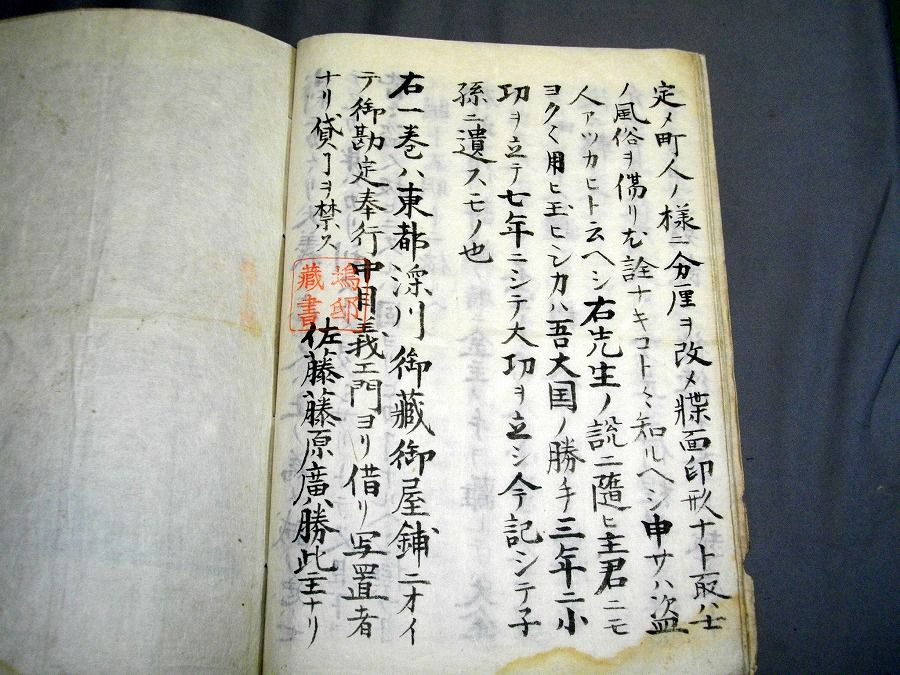 定メ町人ノ様ニ分厘ヲ改メ牒面印形ナト取ハ士
ノ風俗ヲ傷リ尤詮ナキコトヽ知ルヘシ申サハ盗
人アツカヒト云ヘシ右先生ノ説ニ隨ヒ主君ニモ
ヨクヽ用ヒ玉ヒシカハ吾大国ノ勝手三年ニ小
功ヲ立テ七年ニシテ大功ヲ立シ今記シテ子
孫ニ遺スモノ也
右一巻ハ東都深川御藏御屋鋪ニオイ
テ御勘定奉行中目義エ門ヨリ借リ写置者
ナリ貸コヲ禁ス
佐藤藤原廣勝此主ナリ
邸
藏書